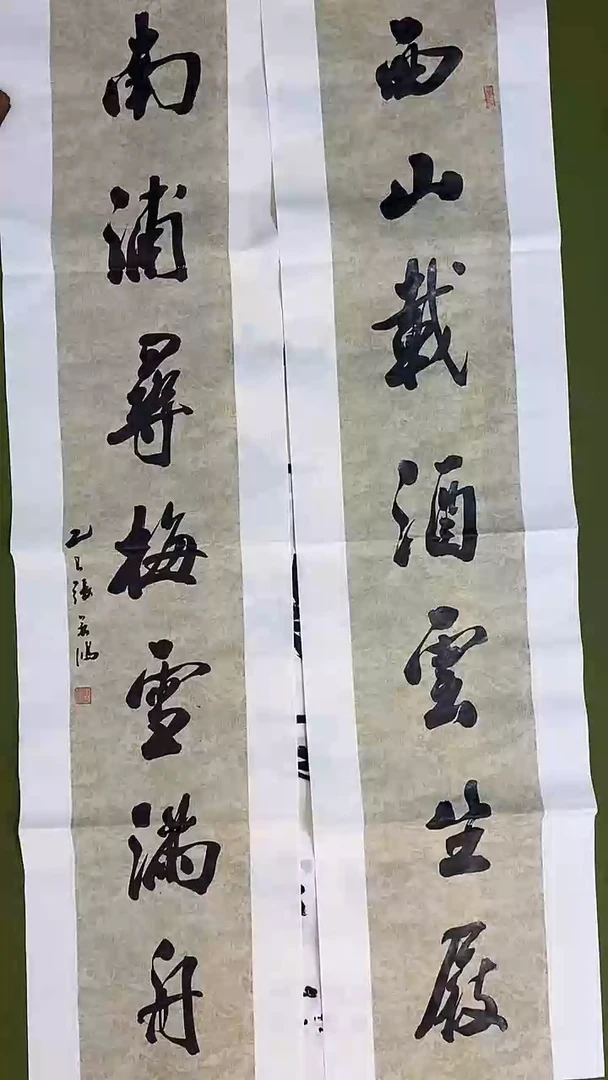 西山載酒雲生屐
南浦尋梅雪滿舟
乙巳張